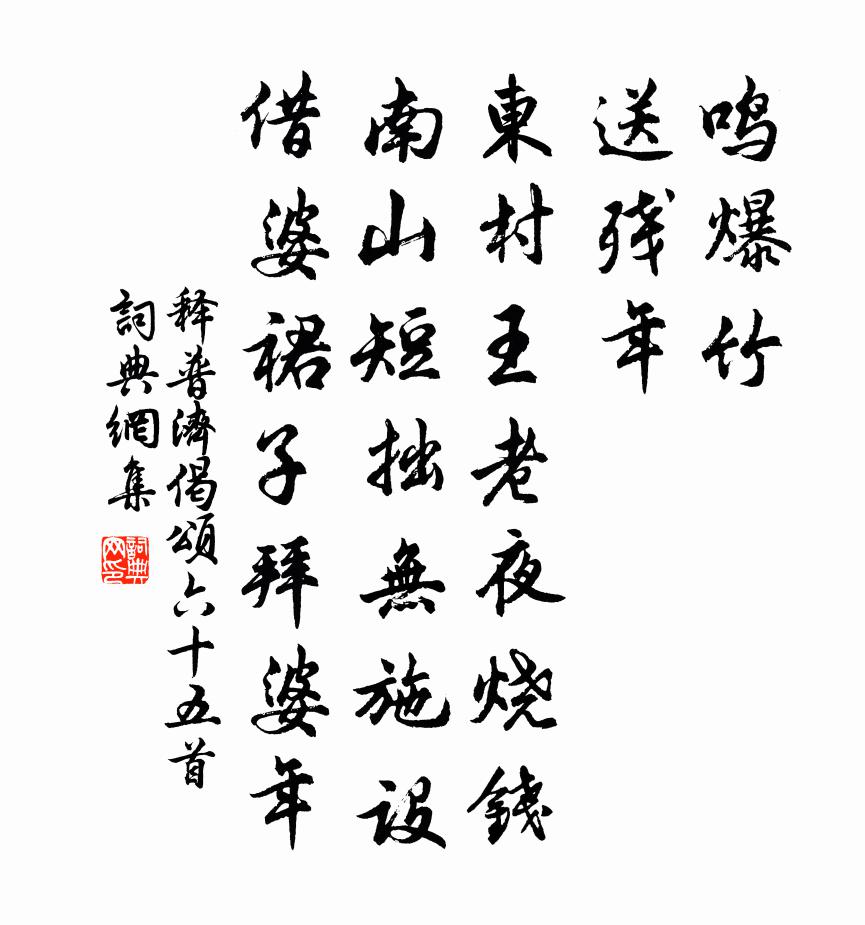 鸣爆竹
送残年
東村王老夜烧錢
南山短拙無施設
借婆裙子拜婆年
释普濟偈頌六十五首
詞典網集
詞典网印